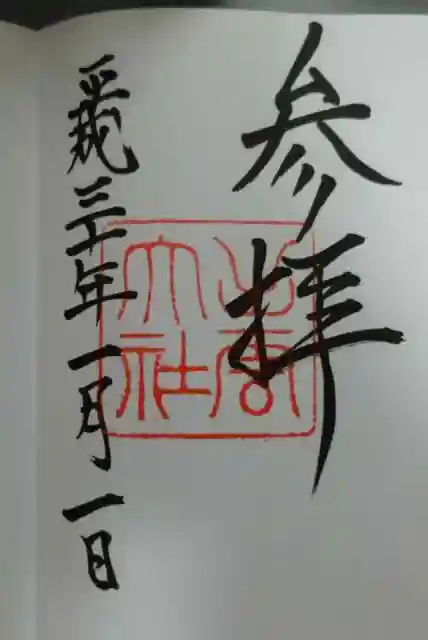 参拝
出雲大社
平成三十年一月一日